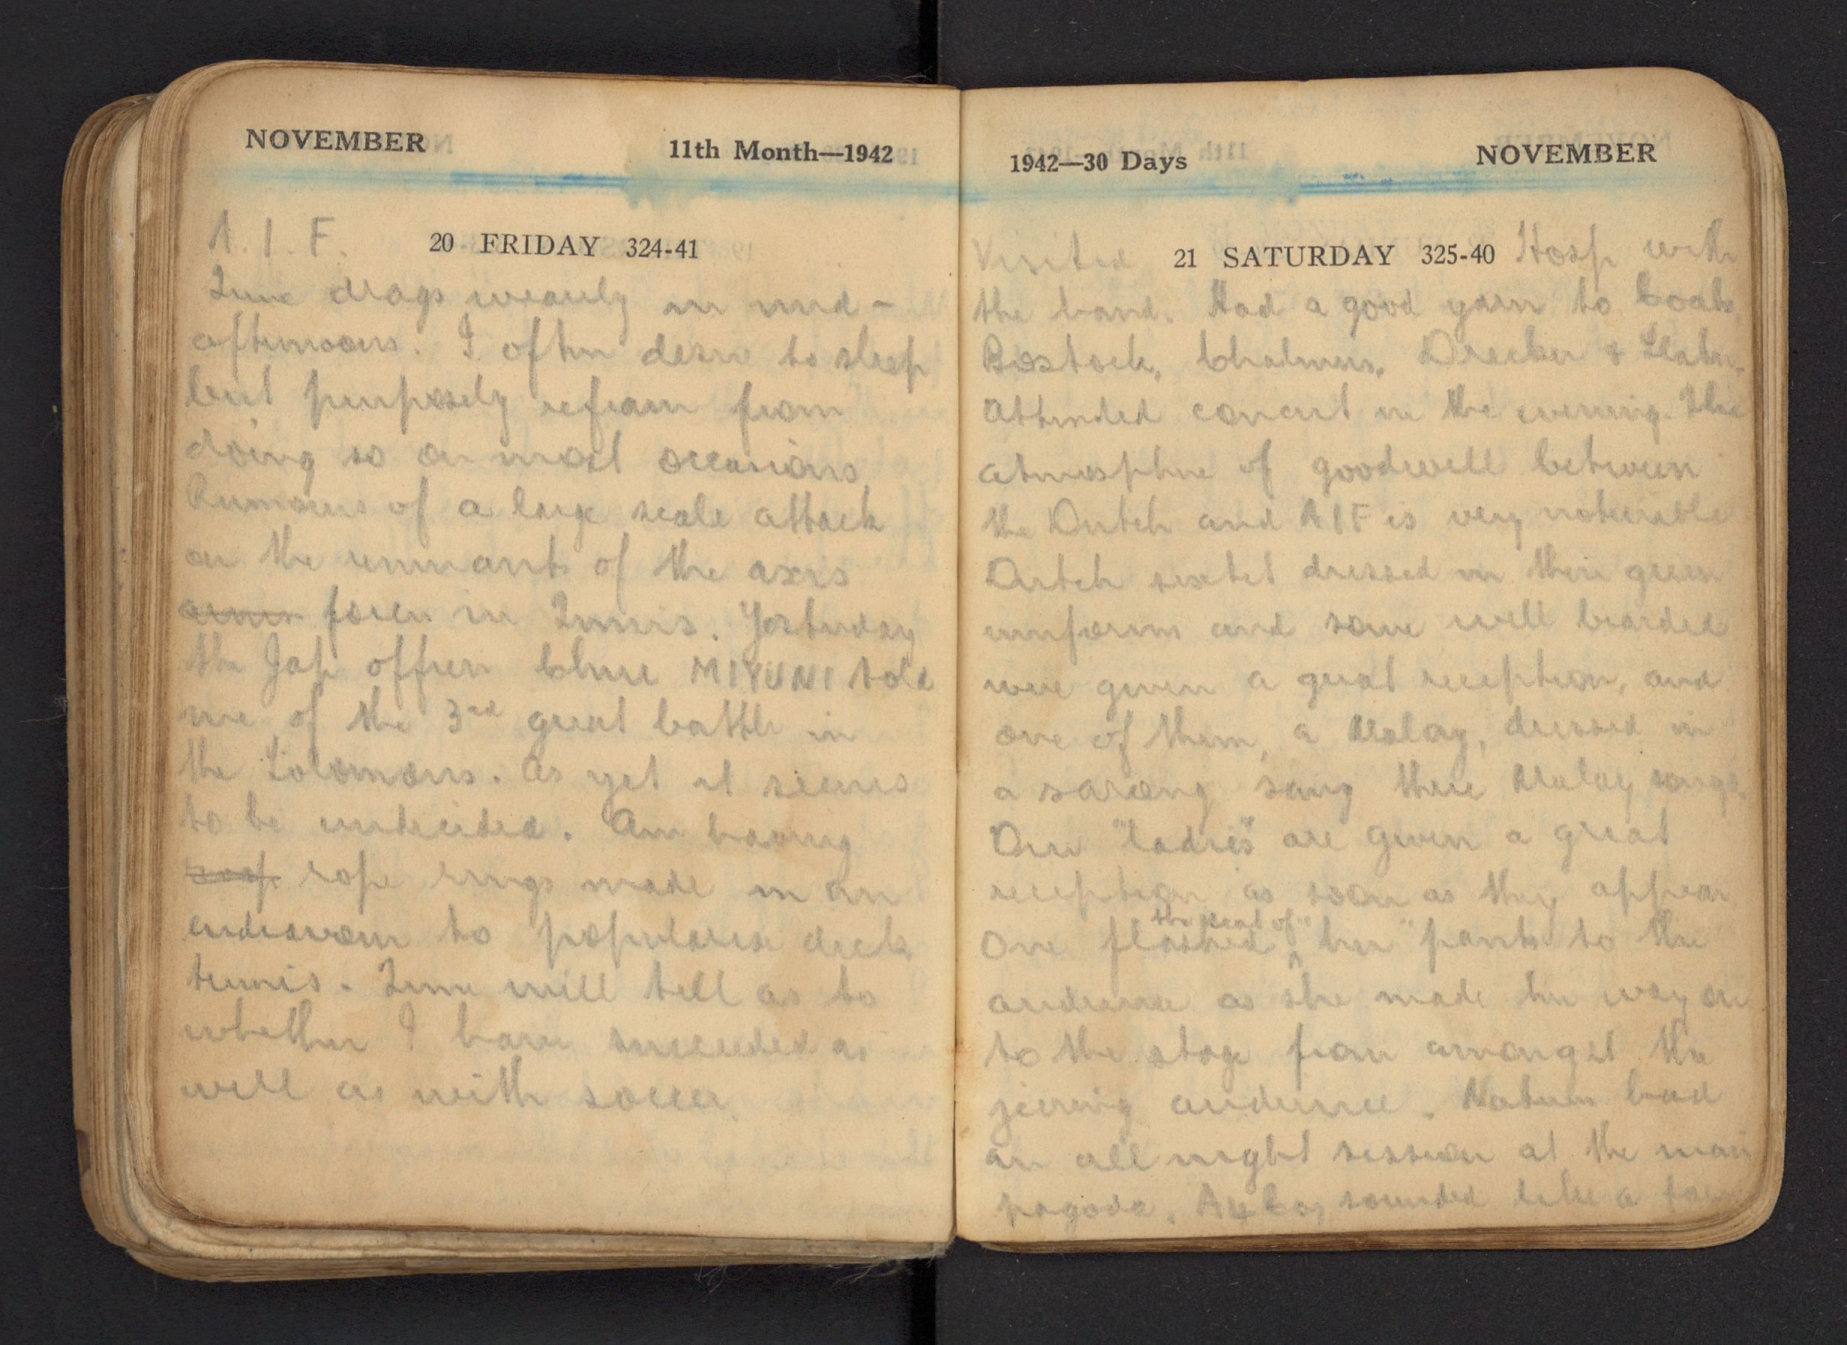 NOVEMBER 11th Month—1942
A. I. F. 20 FRIDAY 324-41
Time drags wearily in mid-
afternoons. I often desire to sleep
but purposely refrain from
doing so on most occasions
Rumours of a large scale attack
on the remnants of the axis
forces in Tunis. Yesterday
the Jap officer MIYUNI told
me of the 3rd great battle in
the Solomons. As yet it seems
to be undecided. Am having
rope rings made in an
endeavour to popularise deck
tennis. Time will tell as to
whether I have succeeded as
well as with soccer.
1942—30 Days NOVEMBER
Visited 21 SATURDAY 325-40 Hosp with
the band. Had a good yarn to
Bostock, Chalmers,
Attended concert in the evening. The
atmosphere of goodwill between
the Dutch and AIF is very noticeable
Dutch sextet dressed in their green
uniforms and some well bearded
were given a great reception, and
one of them, a Malay, dressed in
a sarong sang three Malay songs.
Our "ladies" are given a great
reception as soon as they appear
One flashed the seat of "her" pants to the
audience as she made her way on
to the stage from amongst the
jeering audience. Natives had
an all night session at the main
pagoda. sounded like a